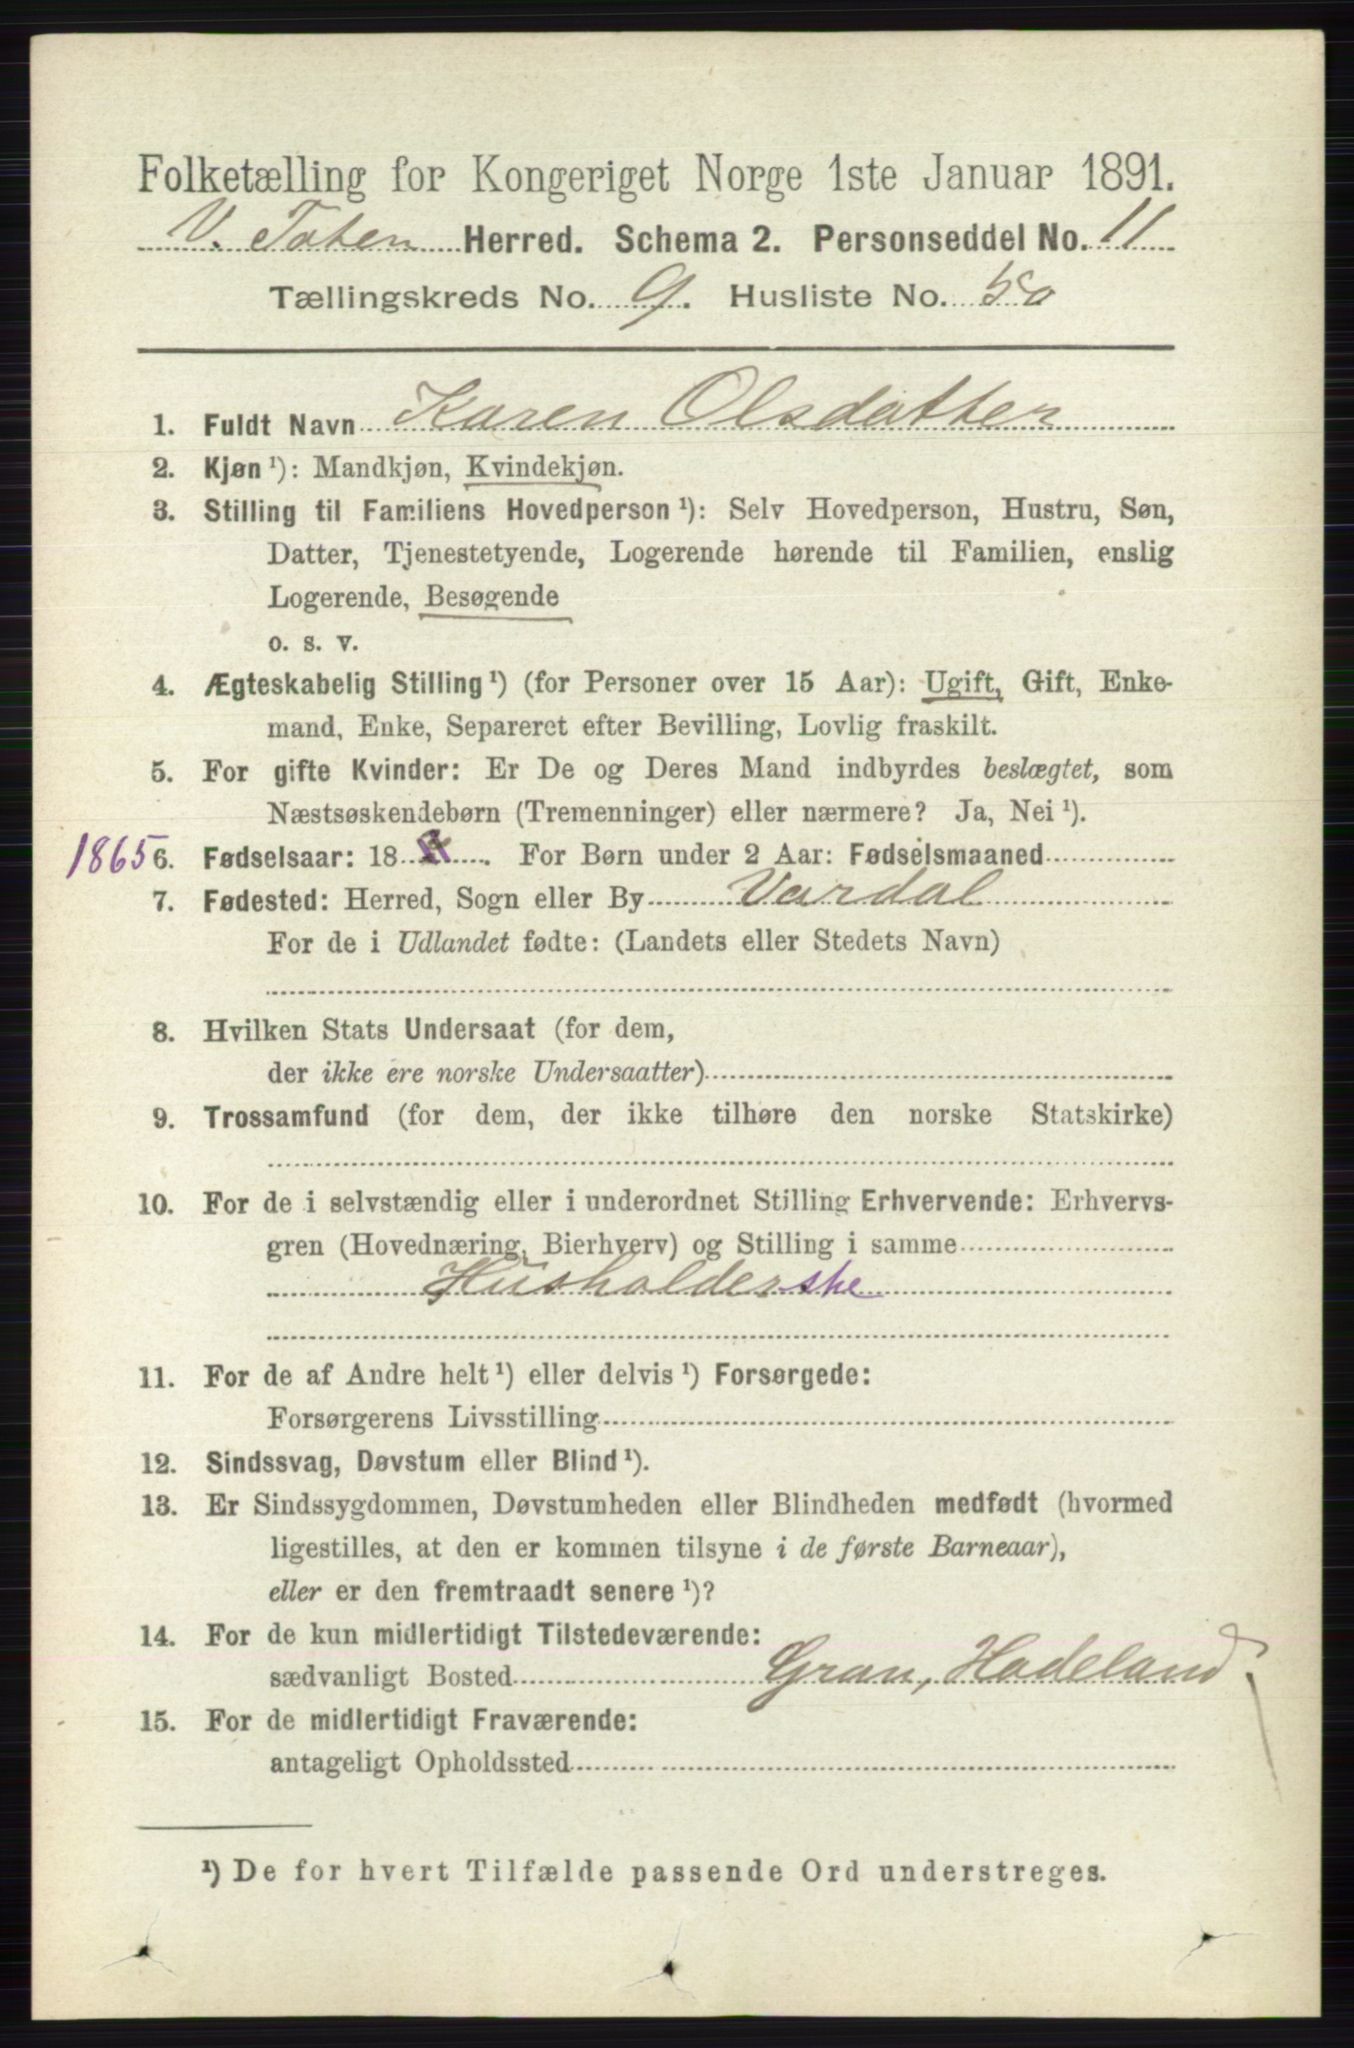 Folketælling for Kongeriget Norge 1ste Januar 1891.
V. Toten Herred. Schema 2. Personseddel No. 11
Tællingskreds No. 9. Husliste No. 50
1. Fuldt Navn Karen Olsdatter
2. Kjøn ¹): Mandkjøn, Kvindekjøn.
3. Stilling til Familiens Hovedperson ¹): Selv Hovedperson, Hustru, Søn,
Datter, Tjenestetyende, Logerende hørende til Familien, enslig
Logerende, Besøgende
o. s. v.
4. Ægteskabelig Stilling ¹) (for Personer over 15 Aar): Ugift, Gift, Enke-
mand, Enke, Separeret efter Bevilling, Lovlig fraskilt.
5. For gifte Kvinder: Er De og Deres Mand indbyrdes beslægtet, som
Næstsøskendebørn (Tremenninger) eller nærmere? Ja, Nei ¹).
1865 6. Fødselsaar: 18 . For Børn under 2 Aar: Fødselsmaaned
7. Fødested: Herred, Sogn eller By Vardal
For de i Udlandet fødte: (Landets eller Stedets Navn)
8. Hvilken Stats Undersaat (for dem,
der ikke ere norske Undersaatter)
9. Trossamfund (for dem, der ikke tilhøre den norske Statskirke)
10. For de i selvstændig eller i underordnet Stilling Erhvervende: Erhvervs-
gren (Hovednæring, Bierhverv) og Stilling i samme
Husholderske
11. For de af Andre helt ¹) eller delvis ¹) Forsørgede:
Forsørgerens Livsstilling
12. Sindssvag, Døvstum eller Blind ¹).
13. Er Sindssygdommen, Døvstumheden eller Blindheden medfødt (hvormed
ligestilles, at den er kommen tilsyne i de første Barneaar),
eller er den fremtraadt senere ¹)?
14. For de kun midlertidigt Tilstedeværende:
sædvanligt Bosted Gran, Hadeland
15. For de midlertidigt Fraværende:
antageligt Opholdssted
¹) De for hvert Tilfælde passende Ord understreges.